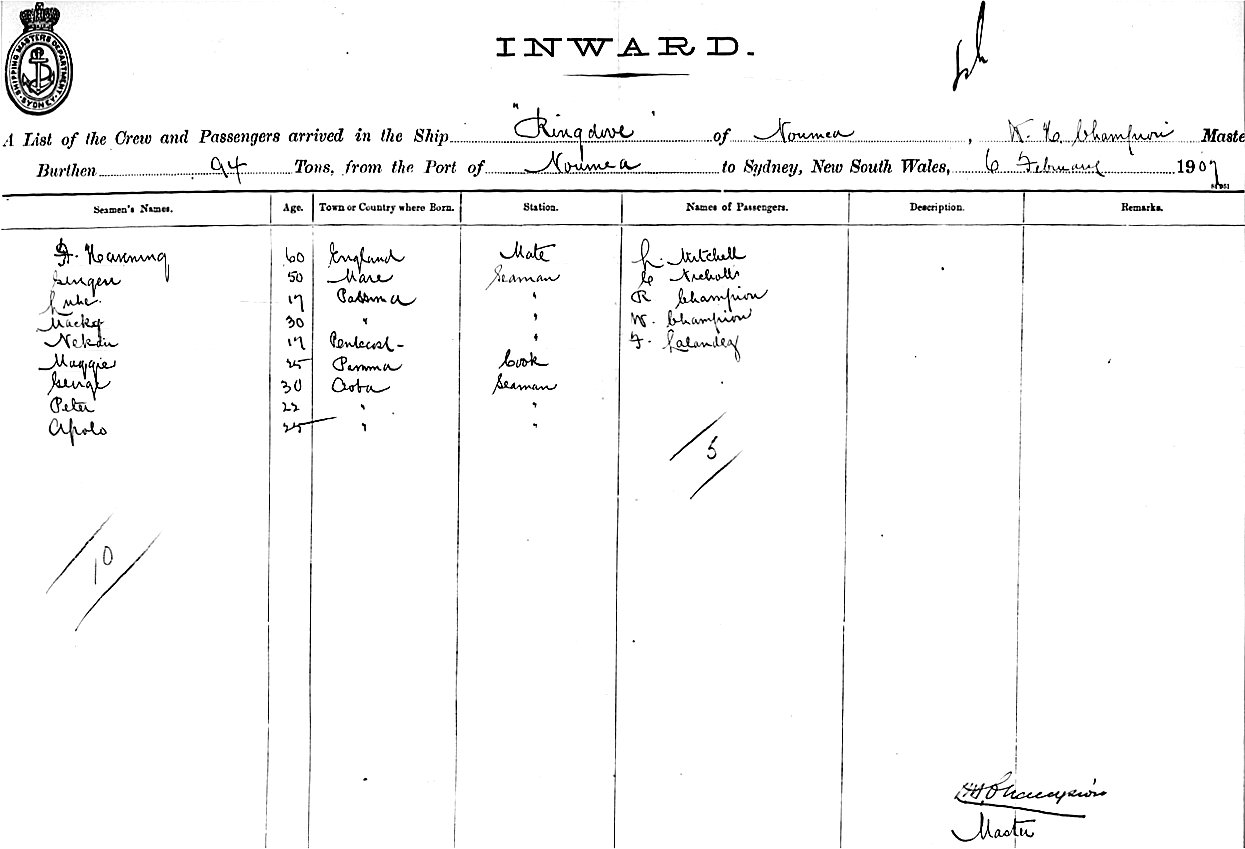 SHIPPING MASTERS DEPARTMENT
SYDNEY
INWARD.
A List of the Crew and Passengers arrived in the Ship "Ringdove" of Noumea, W. H. Champion Maste
Burthen 94 Tons, from the Port of Noumea to Sydney, New South Wales, 6 February 1907
Seamen's Names. Age. Town or Country where Born. Station. Names of Passengers. Description. Remarks.
60 England Mate L. Mitchell
50 Mare Seaman C Nicholls
Luke 17 R Champion
Macky 30 " " W. Champion
17 Pentecost - " F.
Maggie 25 Cook
George 30 Aoba Seaman
Peter 22 " "
Apolo 25 " "
5
10
Champion
Master